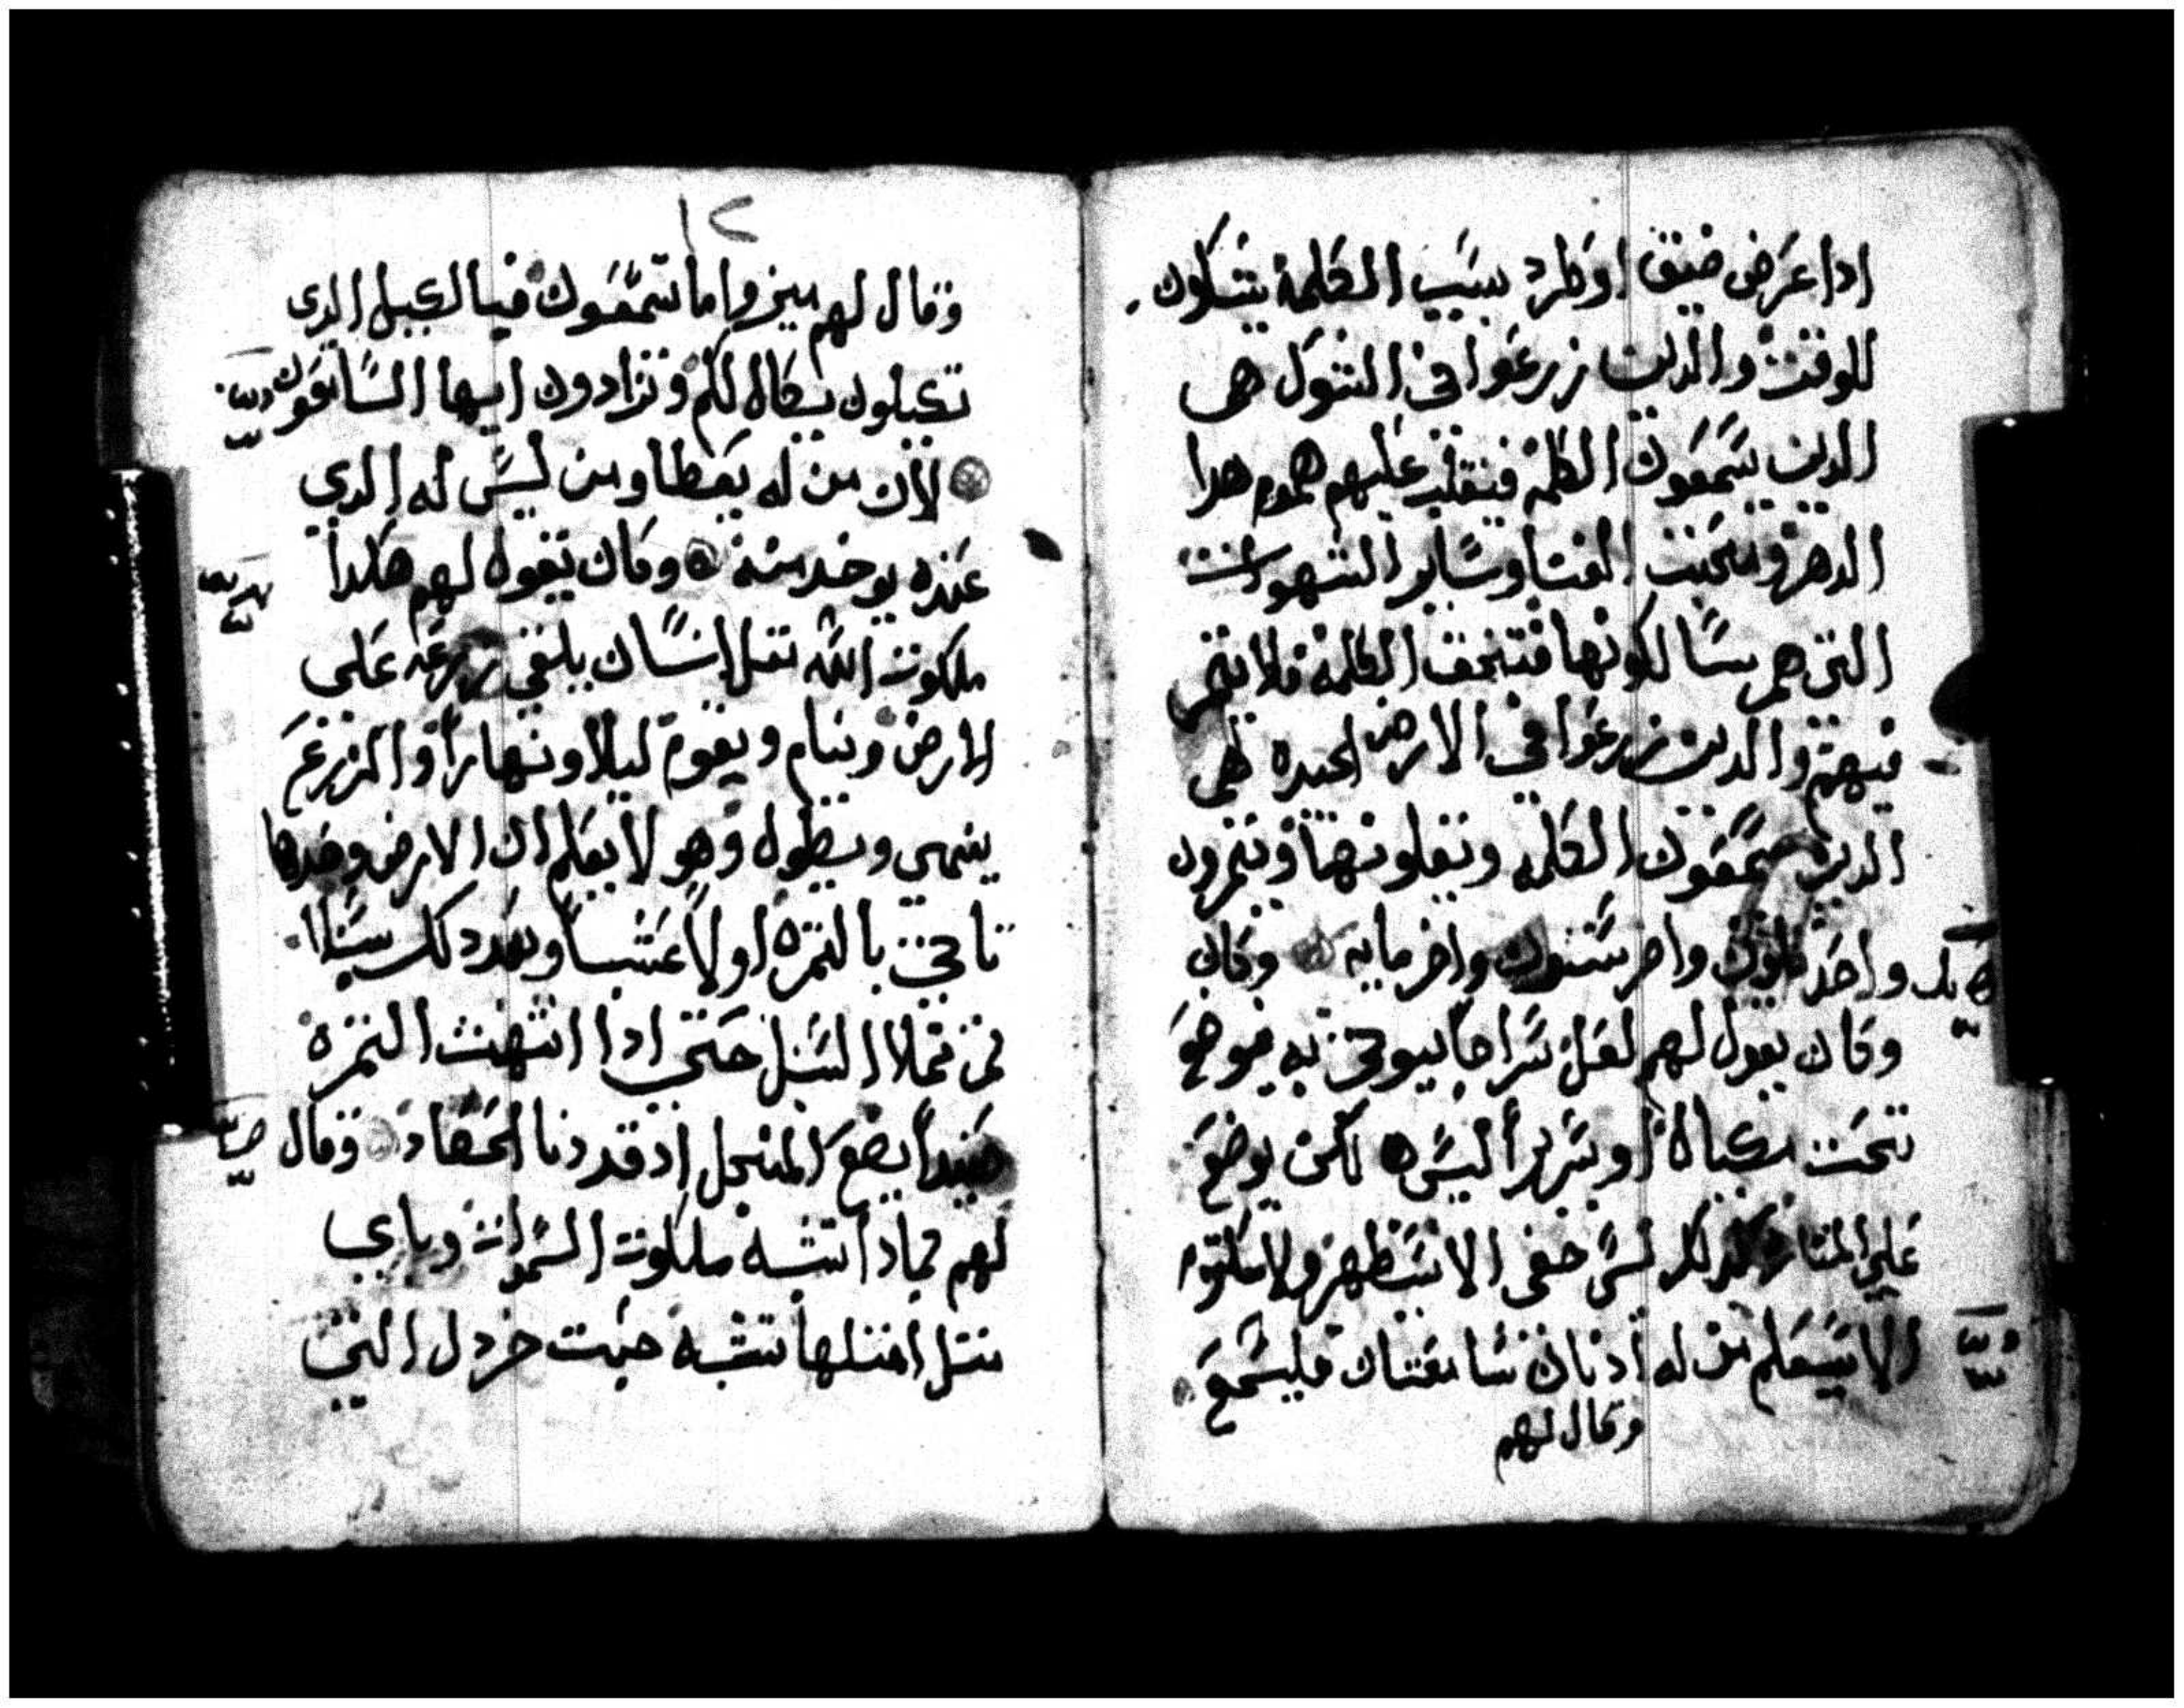 ادا عرض ضيق او طرد بسبب الكلمة يشكون
للوقت والدين زرعوا في الشوك هم
الدين يسمعون الكلمة فتغلب عليهم هموم هدا
الدهر ومحبت الغنا وساير الشهوات
التي هم سالكونها فتخنق الكلمة فلا تثمر
فيهم والدين زرعوا في الارض الجيده هم
الدين يسمعون الكلمه ويقبلونها ويثمرون
واحد ثلثون واخر ستون واخر مايه وكان
وكان يقول لهم لعل سراجا يوتى به فيوضع
تحت مكيال او سرير اليس لكن يوضع
على المناره كدلك ليس خفي الا سيظهر ولا مكتوم
الا سيعلم من له ادنان سامعتان فليسمع
وقال لهم
١٢
وقال لهم ميزوا ما تسمعون فبالكيل الدي
تكيلون يكال لكم وتزادون ايها السامعون
لان من له يعطا ومن ليس له الدي
عنده يوخد منه وكان يقول لهم هكدا
ملكوت الله تمثل انسان يلقي زرعه على
الارض وينام ويقوم ليلا ونهارا والزرع
ينمي ويطول وهو لا يعلم ان الارض وحدها
تاتي بالثمره اولا عشبا وبعد دلك سنبلا
ثم تملا السنبل حتى ادا انتهت الثمرة
حينيدا يضع المنجل اد قد دنا الحصاد وقال
لهم بمادا تشبه ملكوت السموات وباي
مثل امثلها تشبه حبت خردل التي